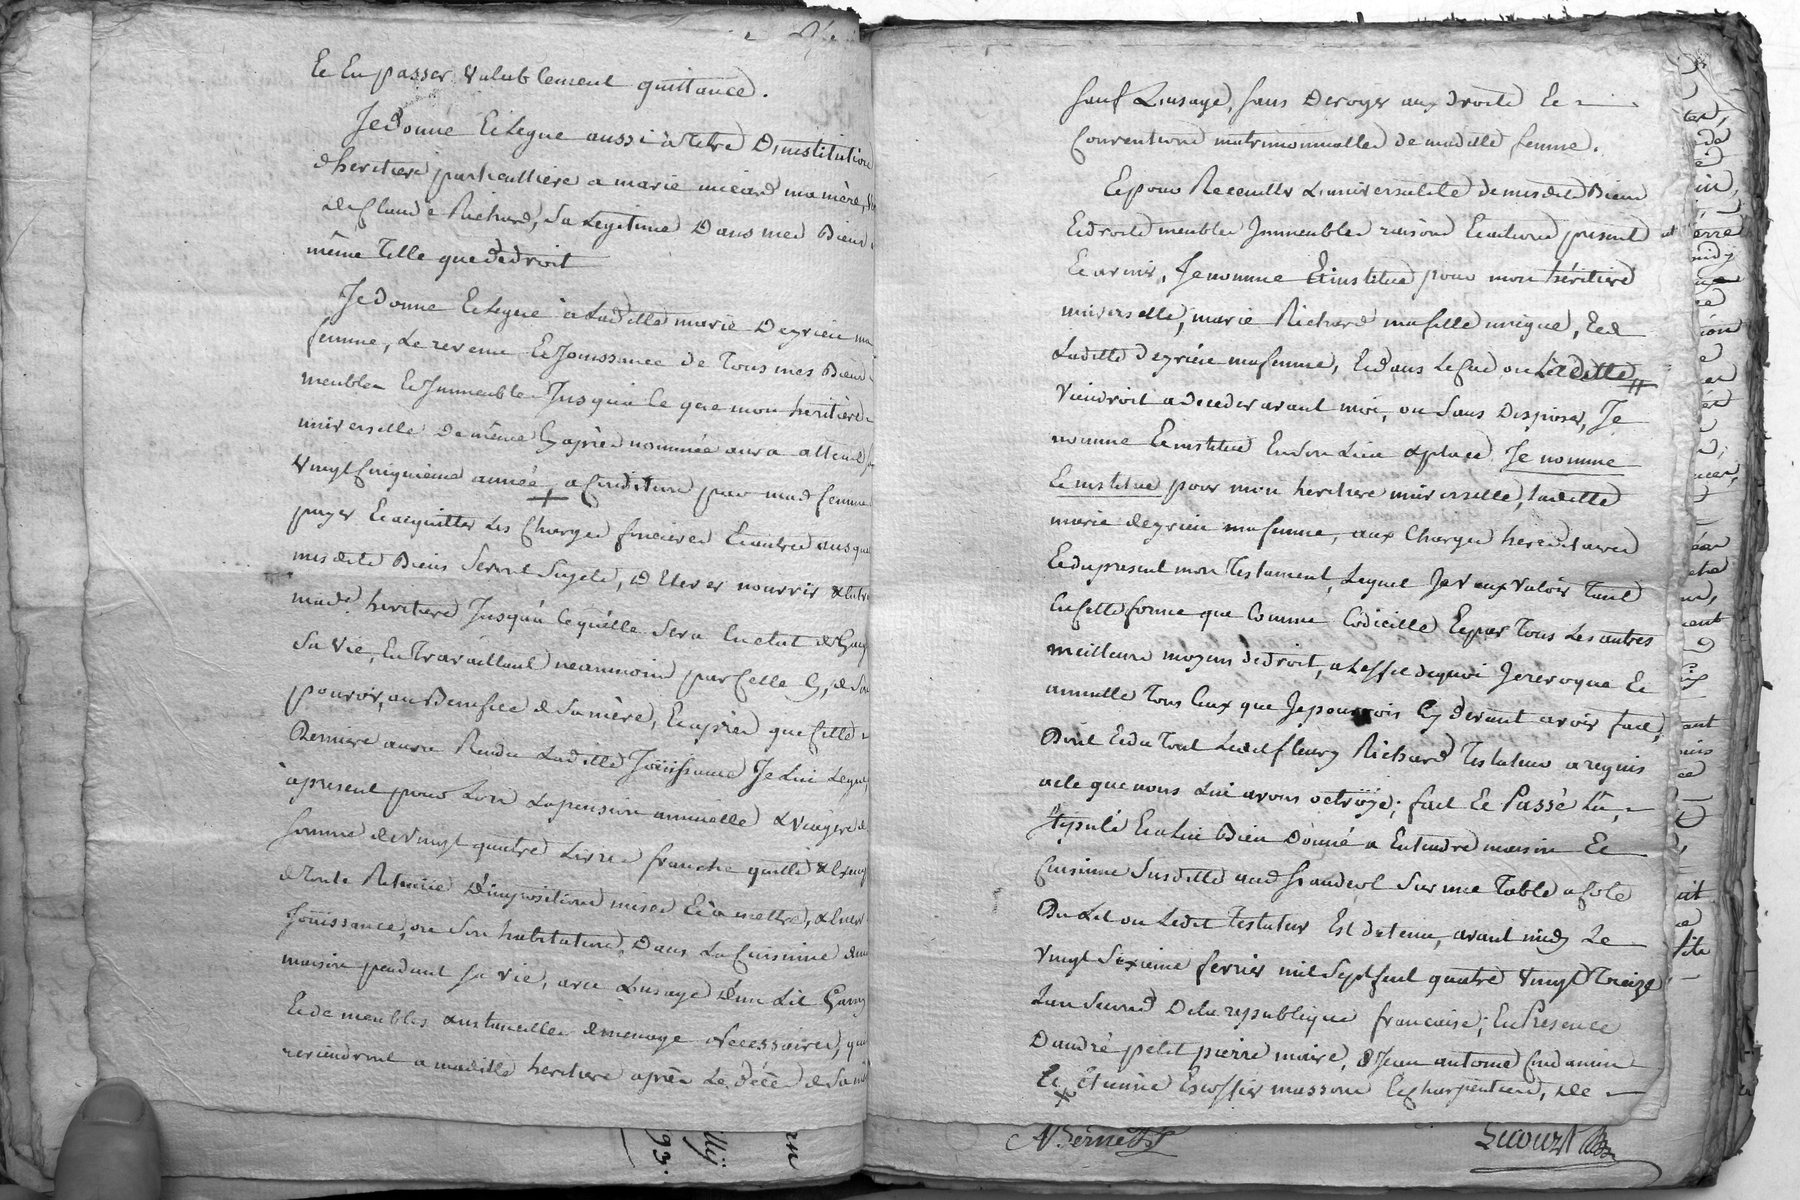 Et En passer valablement quittance.
Je donne Et Legue aussi à Titre D'institution
d'heritiere particulliere a marie micard ma mère,
de Claude Richard, Sa Legitime Dans mes Biens
même Telle que de droit
Je donne Et Legue à Laditte marie Deyrieu ma
femme, Le revenu Et Jouissance de Tous mes Biens
meubles Et Immeubles Jusqu'a Ce que mon heritière
universelle de même Cy après nommée aura atteint
vingt Cinquieme année a Condition par mad. femme
payer Et acquitter Les Charges foncieres Et autres ausquels
mesdits Biens Seront Sujets, D'Elever nourrir &
mad.e heritiere Jusqu'a Ce qu'elle Sera En etat de Gag
Sa vie, En Travaillant neanmoins par Celle Cy, de Son
pouvoir, au Benefice de Sa mère, Et après que Cette
Derniere aura Rendu Ladite Joüissance Je Lui Legue,
à present pour Lors La pension annuelle & viagere de
Somme de vingt quatre Livres franche quitte & Exempte
de toute Retenüe D'impositions mises Et à mettre,
Joüissance, ou Son habitation, Dans La Cuisinne de ma
maison pendant Sa vie, avec L'usage D'un Lit Garny
Et de meubles & ustancilles de menage necessaires, qui
reviendront a maditte heritiere après Le Décès de Sa
sauf L'usage, sans Deroger aux droits Et
Conventions matrimonialles de maditte femme.
Et pour Recueillir L'universalité de mesdits Biens
Et droits meubles Immeubles raisons Et actions present et
Et avenir, Je nomme Et institue pour mon héritiere
universelle, marie Richard ma fille unique, Et de
Laditte deyrieu ma femme, Et dans Le Cas ou Laditte
viendroit a deceder avant moi, ou Sans Disposer, Je
nomme Et institue En Son Lieu & place Je nomme
Et institue pour mon heritiere universelle, Laditte
marie deyrieu ma femme, aux Charges hereditaires
Et du present mon Testament, Lequel Je veux valoir Tant
En Cette forme que Comme Codicille Et par Tous Les autres
meilleurs moyens de droit, a L'effet de quoi Je revoque Et
annulle Tous Ceux que Je pourrois Cy devant avoir fait,
Dont Et du Tout Ledit fleury Richard Testateur a requis
acte que nous Lui avons octroïje; fait Et Passé Lû,
Stipulé Et a Lui Bien Donné a Entendre maison Et
Cuisinne Susditte aud. Sur une Table a Coté
Du Lit ou Ledit Testateur Est detenu, avant midy Le
vingt Sixieme fevrier mil Sept Cent quatre vingt Treize
L'an Second De la republique francaise; En Presence
D'andré petit pierre maire, & Jean antoine Condamin
Et Etienne Escoffier masson Et Charpentier, De
Bernett